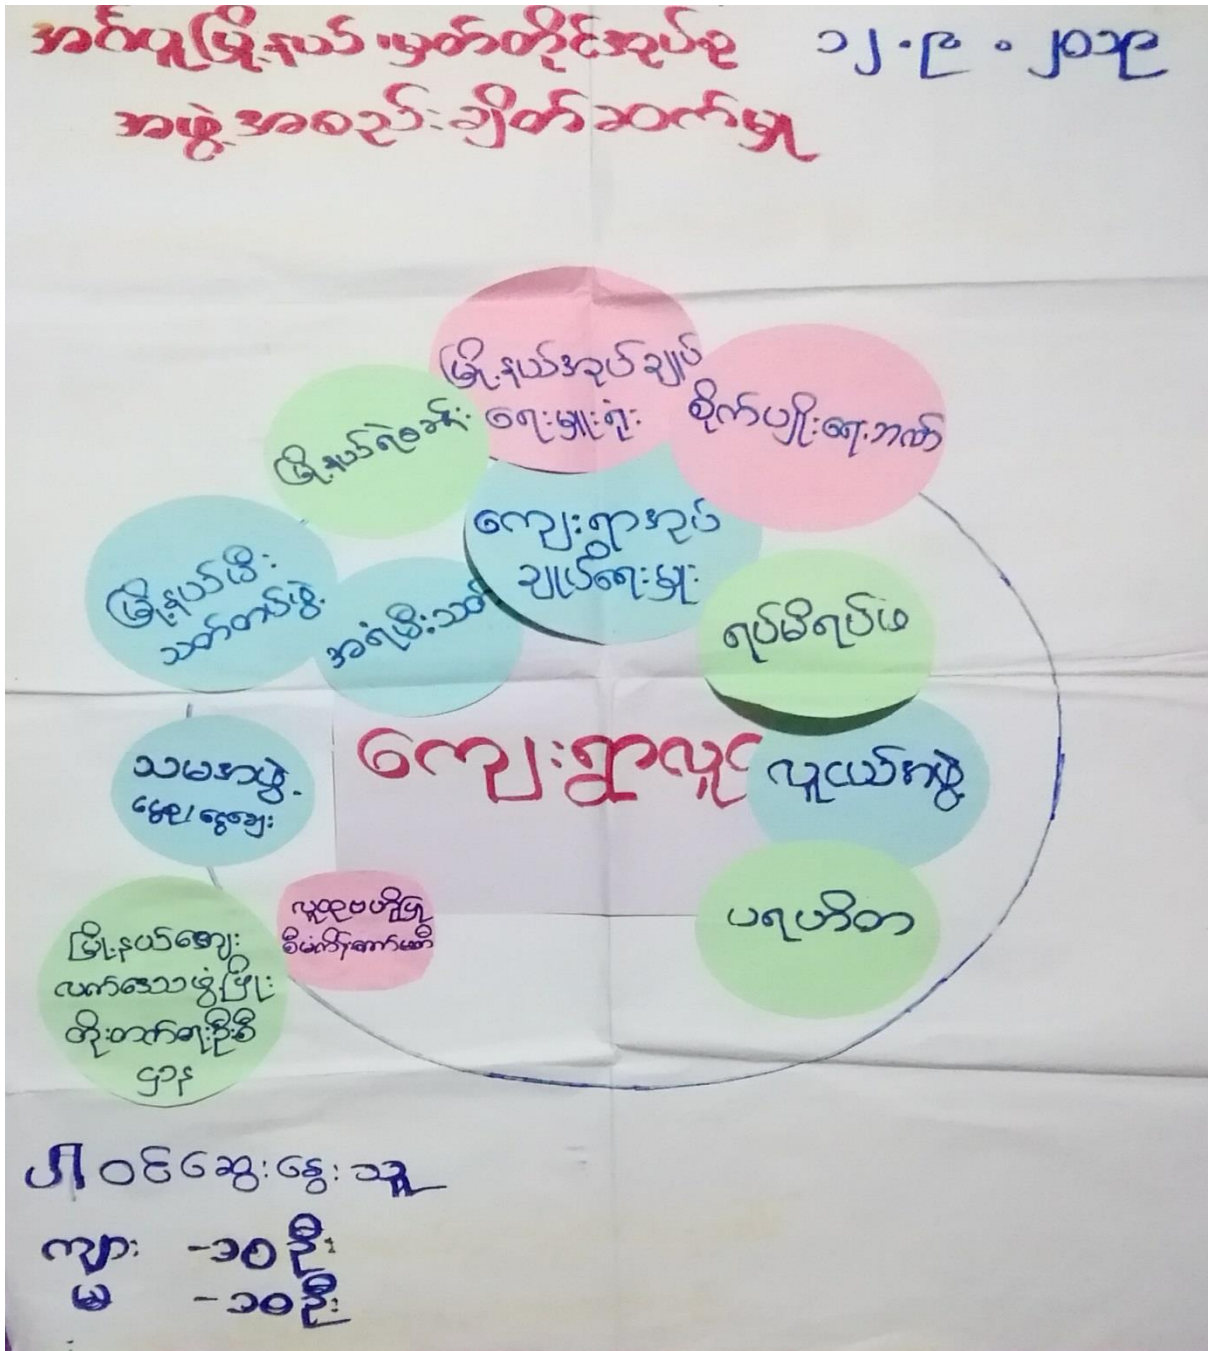 အင်္ဂပူမြို့နယ်၊မှတ်တိုင်အုပ်စု ၁၂.၉.၂၀၁၉
အဖွဲ့အစည်းချိတ်ဆက်မှု
မြို့နယ်အုပ်ချုပ်
ရေးမှူးရုံး
စိုက်ပျိုးရေးဘဏ်
မြို့နယ်ရဲစခန်း
ကျေးရွာအုပ်
ချုပ်ရေးမှူး
မြို့နယ်မီး
သတ်တပ်ဖွဲ့
အရံမီးသတ်
ရပ်မိရပ်ဖ
ကျေးရွာလူ
လူငယ်အဖွဲ့
သမအဖွဲ့
ငွေစု/ငွေချေး
ပရဟိတ
လူထုဗဟိုပြု
စီမံကိန်းကော်မတီ
မြို့နယ်ကျေး
လက်ဒေသဖွံ့ဖြိုး
တိုးတက်ရေးဦးစီ
ဌာန
ပါဝင်ဆွေးနွေးသူ
ကျား -၁၀ဦး
မ -၁၀ဦး